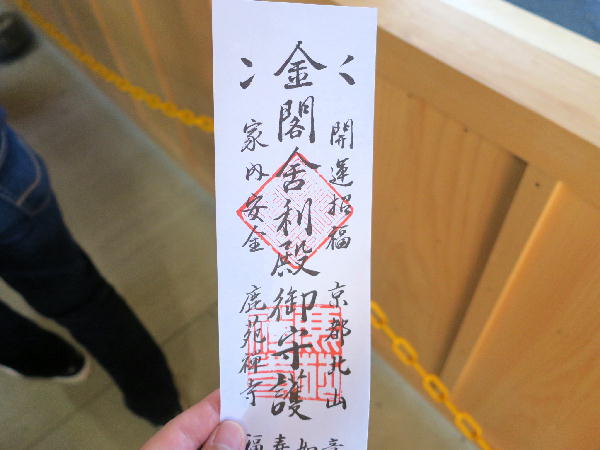 開運招福 京都北山
金閣舎利殿御守護
家内安全 鹿苑禅寺
如
春
福